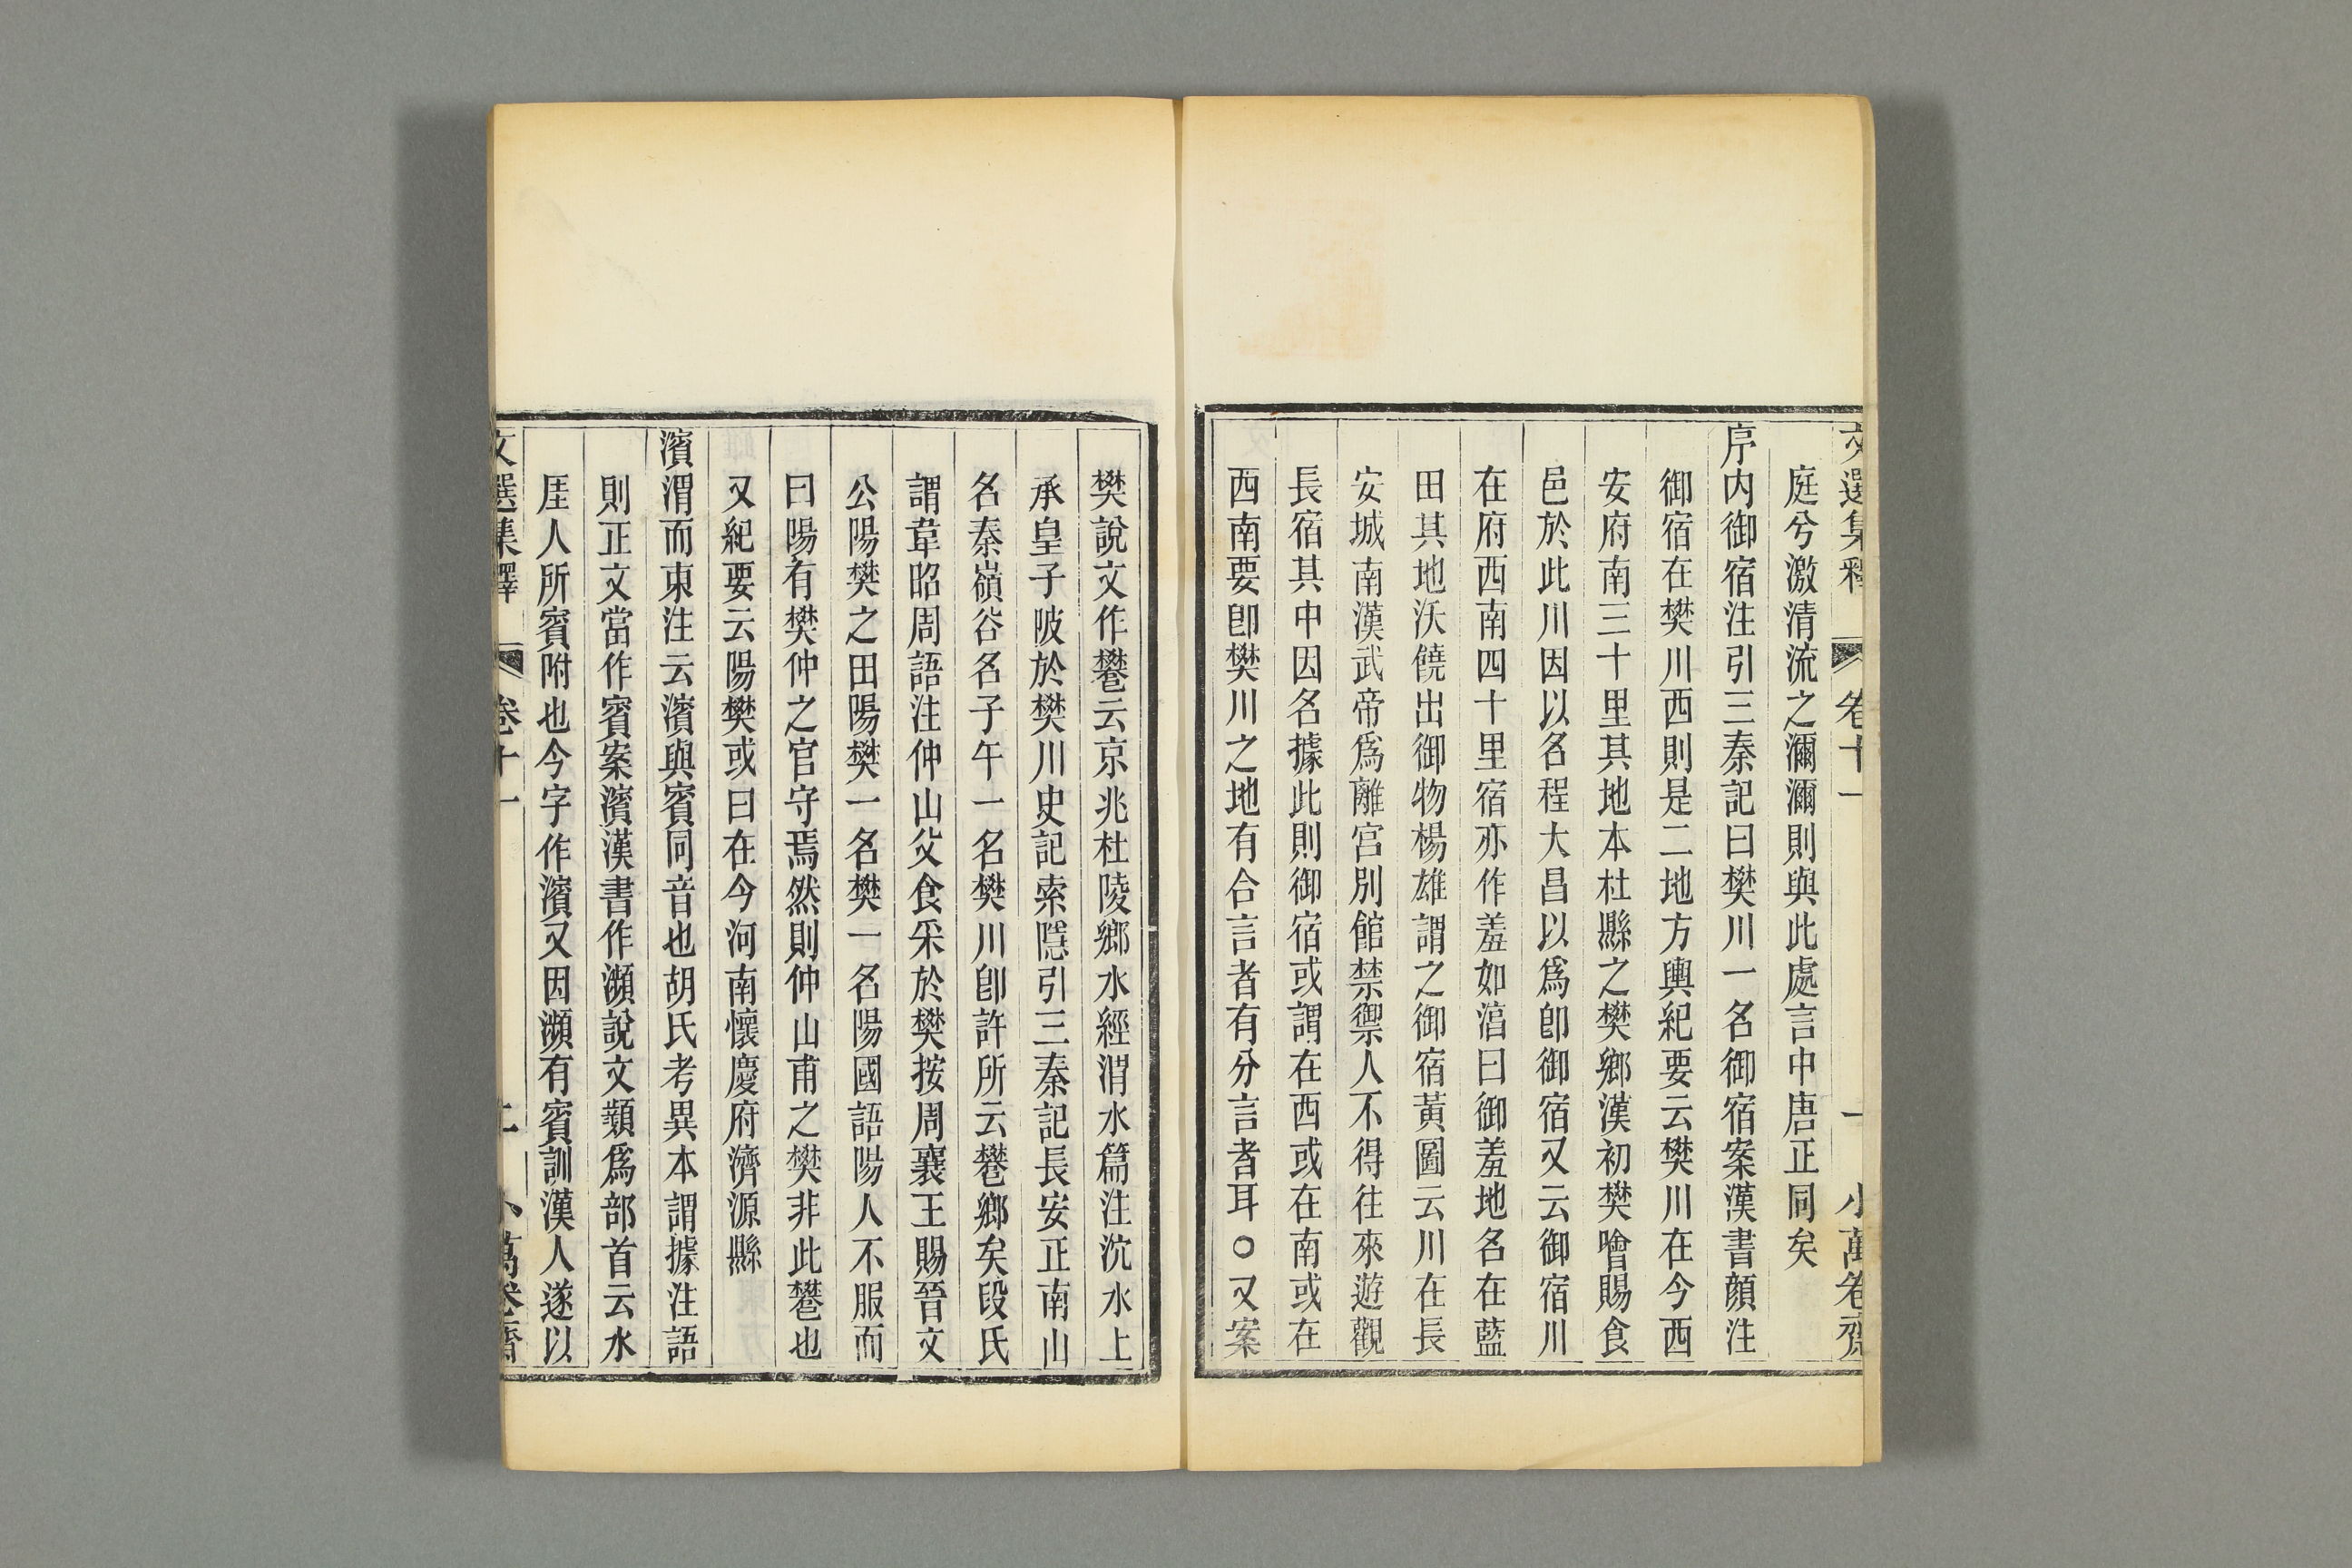 文選集釋 卷十一 一 小萬卷齋
庭兮激清流之瀰瀰則與此處言中唐正同矣
序內御宿注引三秦記曰樊川一名御宿案漢書顏注
御宿在樊川西則是二地方輿紀要云樊川在今西
安府南三十里其地本杜縣之樊鄉漢初樊噲賜食
邑於此川因以名程大昌以爲卽御宿又云御宿川
在府西南四十里宿亦作羞如湻曰御羞地名在藍
田其地沃饒出御物楊雄謂之御宿黃圖云川在長
安城南漢武帝爲離宮別館禁禦人不得往來遊觀
長宿其中因名據此則御宿或謂在西或在南或在
西南要卽樊川之地有合言者有分言者耳○又案
樊說文作𨞪云京兆杜陵鄉水經渭水篇注沇水上
承皇子陂於樊川史記索隱引三秦記長安正南山
名秦嶺谷名子午一名樊川卽許所云𨞪鄉矣段氏
謂韋昭周語注仲山父食采於樊按周襄王賜晉文
公陽樊之田陽樊一名樊一名陽國語陽人不服而
曰陽有樊仲之官守焉然則仲山甫之樊非此𨞪也
又紀要云陽樊或曰在今河南懷慶府濟源縣
濱渭而東注云濱與賓同音也胡氏考異本謂據注語
則正文當作賓案濱漢書作瀕說文顮爲部首云水
厓人所賓附也今字作濱又因瀕有賓訓漢人遂以
文選集釋 卷十一 二 小萬卷齋